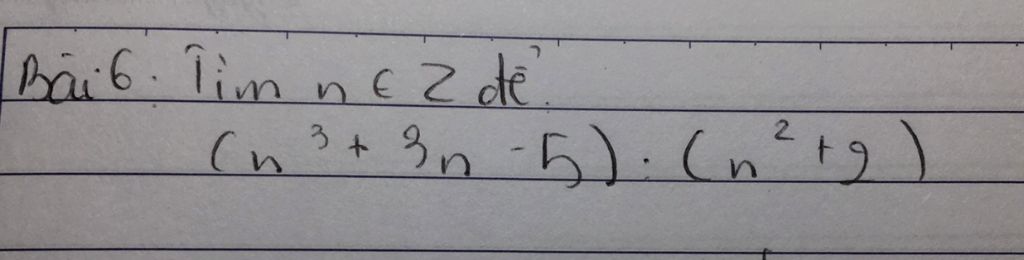 Bài 6. Tìm n ∈ Z để.
(n³ + 3n - 5) : (n² + 2)